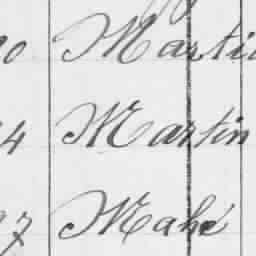 Marti
4 Martin
7 Mahé